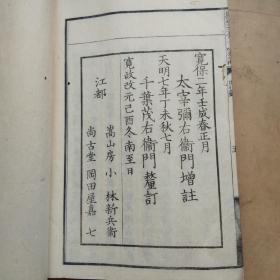 寛保二年壬戌春正月
太宰彌右衞門增註
天明七年丁未秋七月
千葉茂右衞門釐訂
寛政改元己酉冬南至日
江都
嵩山房 小林新兵衞
尚古堂 岡田屋嘉七